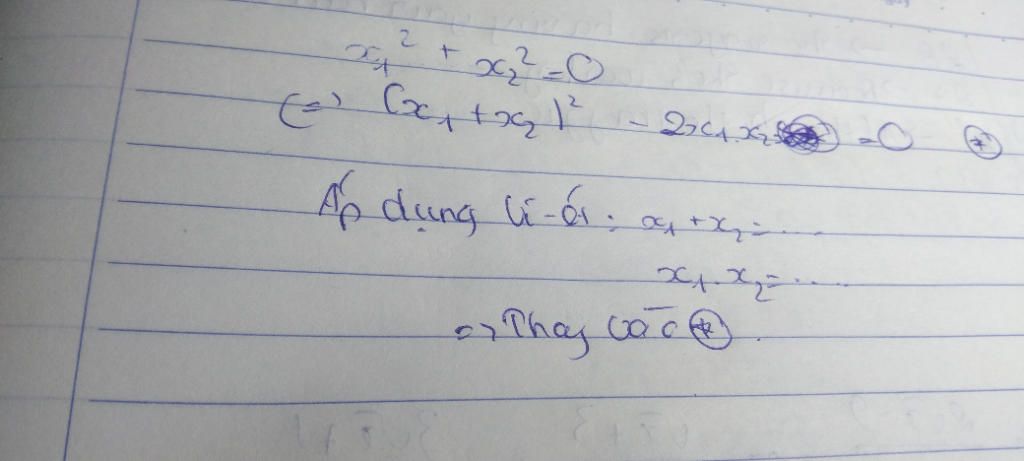 x₁² + x₂² = 0
(=) (x₁ + x₂)² - 2x₁.x₂ = 0 (*)
Áp dụng Vi-ét: x₁ + x₂ = ....
x₁.x₂ = ....
=> Thay vào (*).